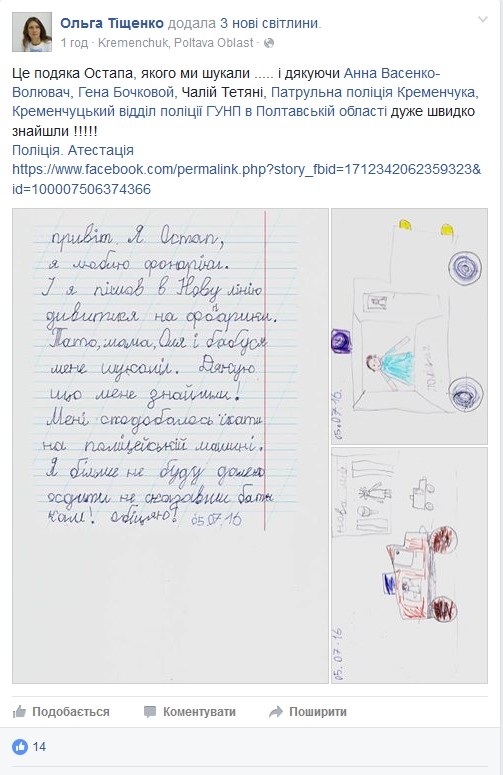 Ольга Тіщенко додала 3 нові світлини.
1 год · Kremenchuk, Poltava Oblast ·
Це подяка Остапа, якого ми шукали ..... і дякуючи Анна Васенко-
Волювач, Гена Бочковой, Чалій Тетяні, Патрульна поліція Кременчука,
Кременчуцький відділ поліції ГУНП в Полтавській області дуже швидко
знайшли !!!!!
Поліція. Атестація
https://www.facebook.com/permalink.php?story_fbid=1712342062359323&
id=100007506374366
привіт. Я Остап,
я люблю фонарики.
І я пішов в Нову лінію
дивитися на фонарики.
Тато, мама, Оля і бабуся
мене шукали. Дякую
що мене знайшли!
Мені сподобалось їхати
на поліцейській машині.
Я більше не буду далеко
ходити не сказавши бать
кам! обіцяю! 05.07.16
05.07.16
нова лінія
05.07-16
Подобається Коментувати Поширити
14